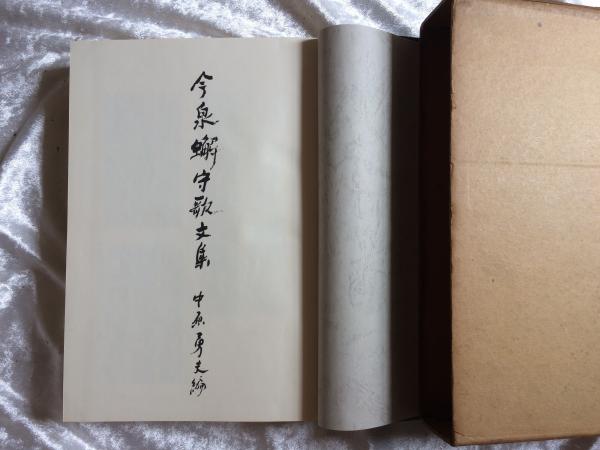 今泉蠏守歌文集
中原勇夫編